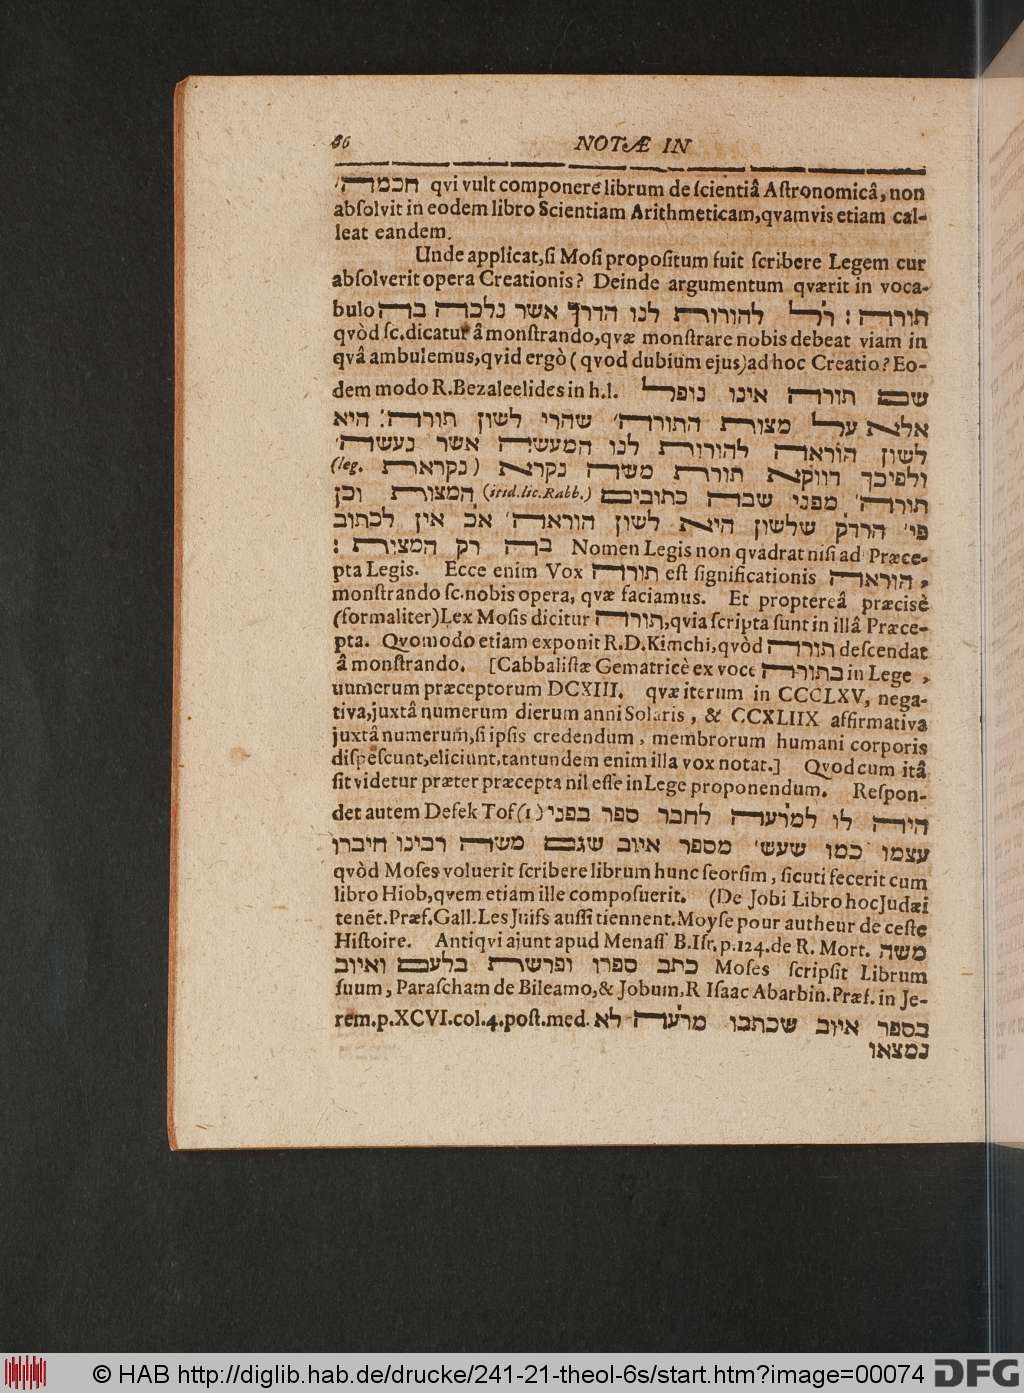 86 NOTÆ IN
חכמה׳ qvi vult componere librum de ſcientiâ Aſtronomicâ, non
abſolvit in eodem libro Scientiam Arithmeticam, qvamvis etiam cal-
leat eandem.
Unde applicat, ſi Moſi propoſitum fuit ſcribere Legem cur
abſolverit opera Creationis? Deinde argumentum qværit in voca-
bulo תורה : רל להורות לנו הדרך אשר נלכה בה
qvòd ſc. dicatur â monſtrando, qvæ monſtrare nobis debeat viam in
qvâ ambulemus, qvid ergò (qvod dubium ejus) ad hoc Creatio? Eo-
dem modo R. Bezaleelides in h. l. שם תורה אינו נופל
אלא על מצות התורה׳ שהרי לשון תורה: היא
לשון הוראה להורות לנו המעשה אשר נעשה׳
ולפיכך דווקא תורת משה נקרא (נקראת (leg.
תורה׳ מפני שבה כתובים (itid. lic. Rabb.) המצות וכן
פי׳ הרדק שלשון היא לשון הוראה׳ אכ אין לכתוב
בה רק המצות : Nomen Legis non qvadrat niſi ad Præce-
pta Legis. Ecce enim Vox תורה eſt ſignificationis הוראה,
monſtrando ſc. nobis opera, qvæ faciamus. Et proptereâ præcisè
(formaliter) Lex Moſis dicitur תורה, qvia ſcripta ſunt in illâ Præce-
pta. Qvomodo etiam exponit R. D. Kimchi, qvòd תורה deſcendat
â monſtrando. [Cabbaliſtæ Gematricè ex voce בתורה in Lege,
numerum præceptorum DCXIII. qvæ iterum in CCCLXV, nega-
tiva, juxtâ numerum dierum anni Solaris, & CCXLIIX affirmativa
juxtâ numerum, ſi ipſis credendum, membrorum humani corporis
diſpeſcunt, eliciunt, tantundem enim illa vox notat.] Qvod cum itâ
ſit videtur præter præcepta nil eſſe in Lege proponendum. Reſpon-
det autem Defek Tof (1) היה לו למרעה לחבר ספר בפני
עצמו כמו שעש׳ מספר איוב שגם משה רבינו חיברו
qvòd Moſes voluerit ſcribere librum hunc ſeorſim, ſicuti fecerit cum
libro Hiob, qvem etiam ille compoſuerit. (De Jobi Libro hoc Judæi
tenēt. Præf. Gall. Les Juifs auſſi tiennent. Moyſe pour autheur de ceſte
Hiſtoire. Antiqvi ajunt apud Menaſſ B. Iſr. p. 124. de R. Mort. משה
כתב ספרו ופרשת בלעם ואיוב Moſes ſcripſit Librum
ſuum, Paraſcham de Bileamo, & Jobum. R Iſaac Abarbin. Præf. in Je-
rem. p. XCVI. col. 4. poſt. med. בספר איוב שכתבו מרעה לא
נמצאו
© HAB http://diglib.hab.de/drucke/241-21-theol-6s/start.htm?image=00074 DFG